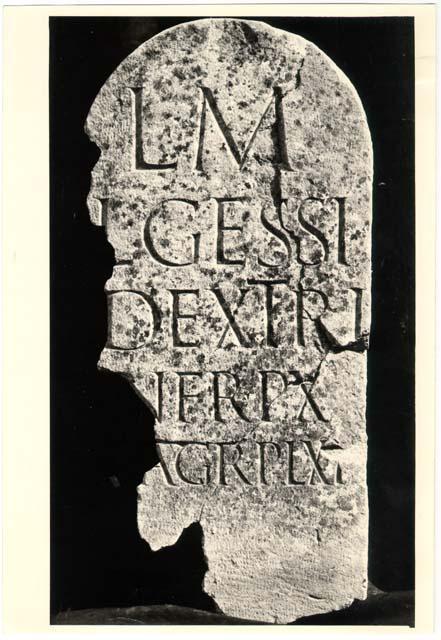 L M
L GESSI
DEXTRI
IN FR P X
IN AGR P LXI